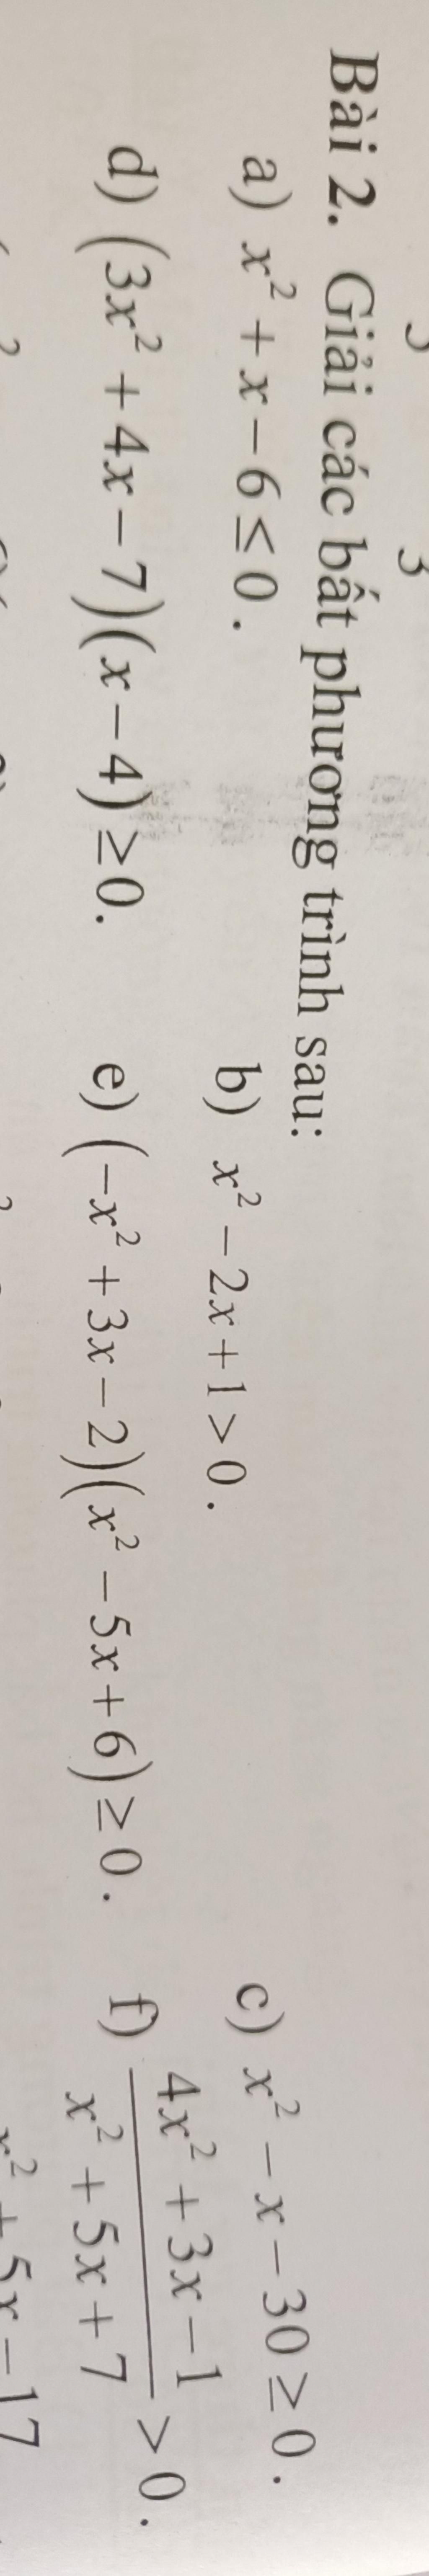 Bài 2. Giải các bất phương trình sau:
a) x² + x − 6 ≤ 0. b) x² − 2x + 1 > 0. c) x² − x − 30 ≥ 0.
d) (3x² + 4x − 7)(x − 4) ≥ 0. e) (−x² + 3x − 2)(x² − 5x + 6) ≥ 0. f) (4x² + 3x − 1)/(x² + 5x + 7) > 0.